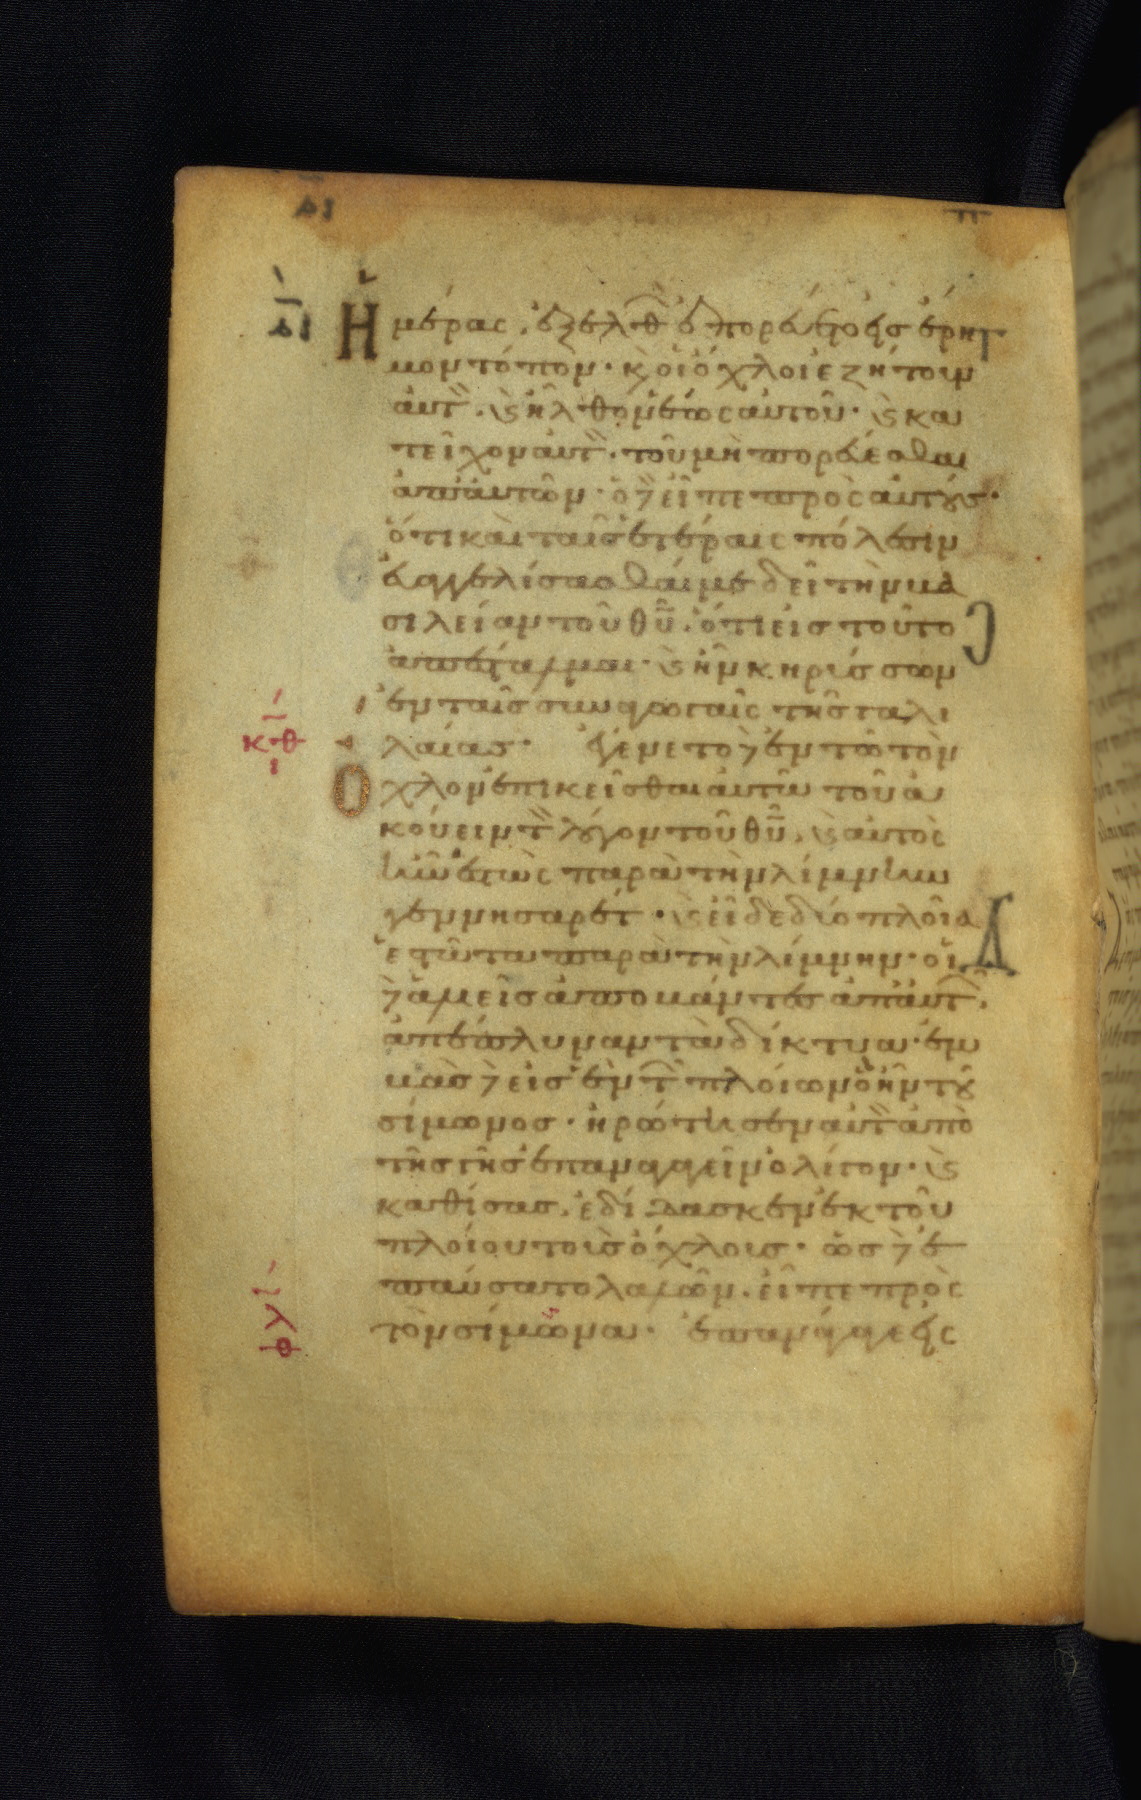 Ημέρας. ἐξελθ ἐπορεύθη εἰς ἔρη
μον τόπον· κ οἱ ὄχλοι ἐζήτουν
αὐτ. κ ἦλθον ἕως αὐτοῦ· κ κα
τεῖχον αὐτ. τοῦ μὴ πορεύεσθαι
ἀπ αὐτῶν· ὁ δ εἶπε πρὸς αὐτούς·
ὅτι καὶ ταῖς ἑτέραις πόλεσιν
εὐαγγελίσασθαί με δεῖ τὴν βα
σιλείαν τοῦ θῦ. ὅτι εἰς τοῦτο
ἀπέσταλμαι· κ ἦν κηρύσσων
ἐν ταῖς συναγωγαῖς τῆς γαλι
λαίας· ἐγένετο δ ἐν τῶ τὸν
Οχλον ἐπικεῖσθαι αὐτῶ τοῦ ἀ
κούειν τ λόγον τοῦ θῦ. κ αὐτὸς
ἦν ἑστὼς παρὰ τὴν λίμνην
γεννησαρέτ· κ εἶδε δύο πλοῖα
ἑστῶτα παρὰ τὴν λίμνην· οἱ
δ ἁλιεῖς ἀποβάντες ἀπ αὐτ.
ἀπέπλυναν τὰ δίκτυα· ἐμ
βὰς δ εἰς ἓν τ πλοίων ὃ ἦν τοῦ
σίμωνος· ἠρώτησεν αὐτ ἀπὸ
τῆς γῆς ἐπαναγαγεῖν ὀλίγον· κ
καθίσας. ἐδίδασκεν ἐκ τοῦ
πλοίου τοὺς ὄχλους· ὡς δ ἐ
παύσατο λαλῶν. εἶπε πρὸς
τὸν σίμωνα· ἐπανάγαγε εἰς